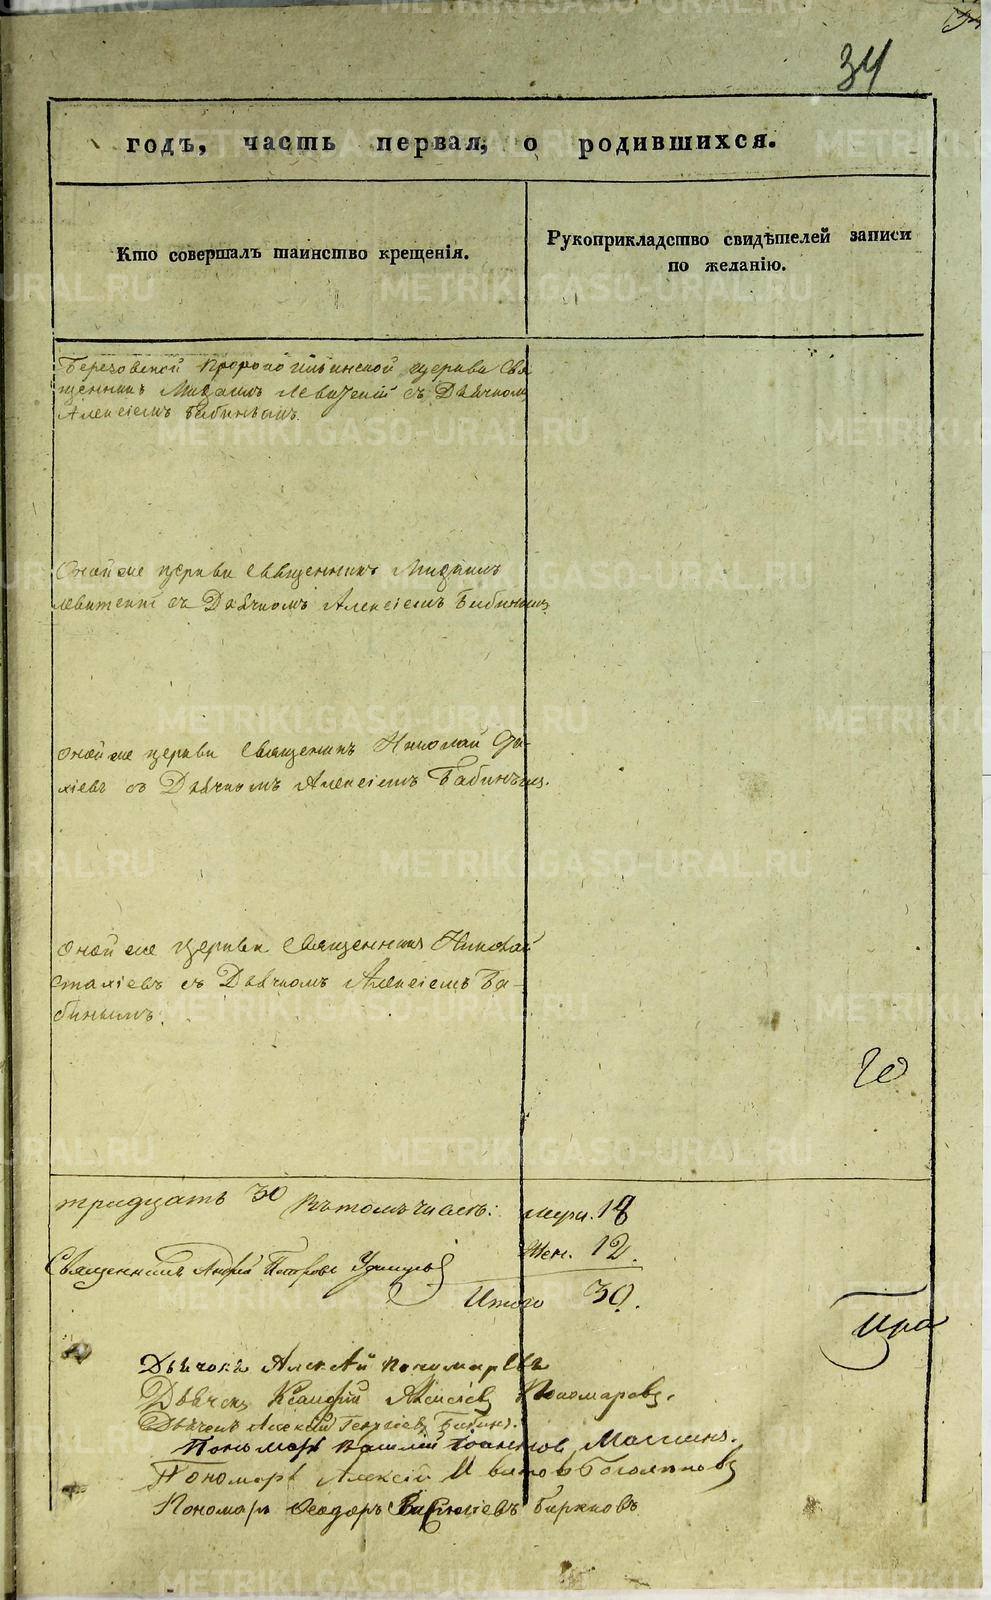 34
годъ, часть первая, о родившихся.
Кто совершалъ таинство крещенія.
Рукоприкладство свидѣтелей записи
по желанію.
Березовской Пророко Ильинской церкви Свя
щенникъ Михаилъ Левитскій съ Дьячкомъ
Алексіемъ Бабинымъ.
Оной же церкви священникъ Михаилъ
Левитскій съ Дьячкомъ Алексіемъ Бабинымъ
оной же церкви священникъ Николай
съ Дьячкомъ Алексіемъ Бабинымъ.
оной же церкви священникъ Николай
съ Дьячкомъ Алексіемъ Ба-
бинымъ.
тридцать 30 Въ томъ числѣ: муж. 18
Жен. 12.
Священникъ Андрей Петровъ
Итого 30.
Дьячокъ Алексѣй Пономаревъ
Дьячокъ Алексіевъ Пономаревъ.
Дьячекъ Алексѣй Георгіевъ Бабинъ.
Пономарь Василій Іоанновъ
Пономарь Алексій
Пономарь Ѳеодоръ Бирюковъ
METRIKI.GASO-URAL.RU